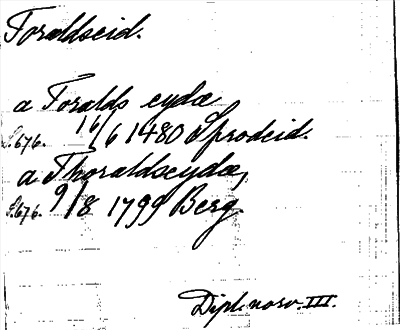 Toraldseid.
a Toralds eydæ
S.676. 16/6 1480 Sprodeid.
a Thoraldseydæ,
S.676. 9/8 1799 Berg.
Dipl. norv. III.